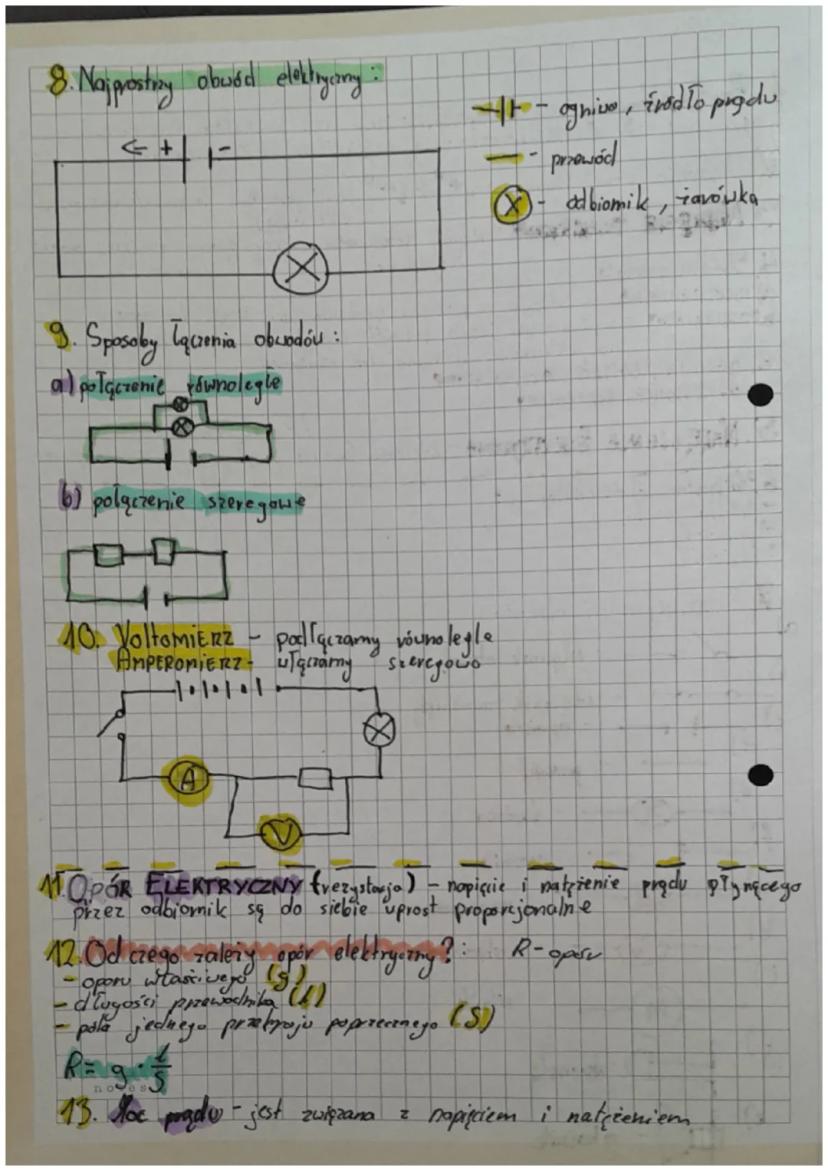 8. Najprostszy obwód elektryczny:
- ogniwo, źródło prądu
- przewód
X - odbiornik, żarówka
← + -
9. Sposoby łączenia obwodów:
a) połączenie równoległe
b) połączenie szeregowe
10. VOLTOMIERZ - podłączamy równolegle
AMPEROMIERZ - włączamy szeregowo
A
V
11. OPÓR ELEKTRYCZNY (rezystancja) - napięcie i natężenie prądu płynącego
przez odbiornik są do siebie wprost proporcjonalne
12. Od czego zależy opór elektryczny?: R - oporu
- oporu właściwego (g)
- długości przewodnika (l)
- pola jednego przekroju poprzecznego (S)
R = g · l/S
13. Moc prądu - jest związana z napięciem i natężeniem